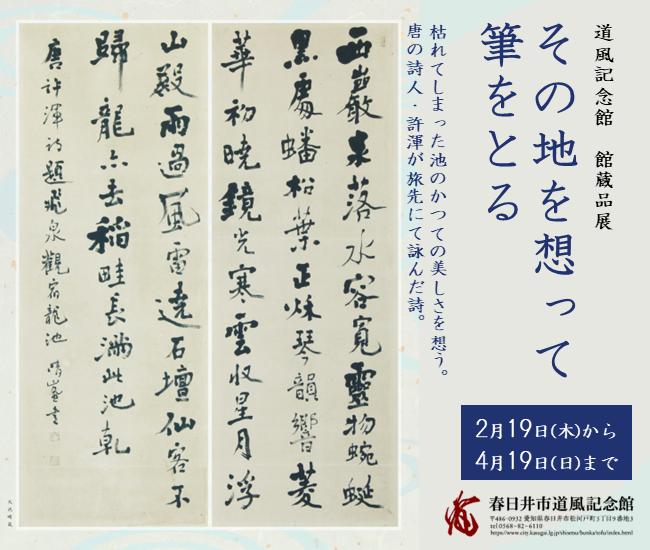 道風記念館 館蔵品展
その地を想って
筆をとる
枯れてしまった池のかつての美しさを想う。
唐の詩人・許渾が旅先にて詠んだ詩。
西巖泉落水容寛靈物蜿蜒
黒處蟠松葉正秌琴韻響菱
華初曉鏡光寒雲収星月浮
山殿雨過風雷遶石壇仙客不
歸龍亦去稲畦長満此池乾
唐許渾詩題飛泉觀宿龍池 晴嵐書
大池晴嵐
2月19日(木)から
4月19日(日)まで
春日井市道風記念館
〒486-0932 愛知県春日井市松河戸町5丁目9番地3
tel 0568-82-6110
https://www.city.kasugai.lg.jp/shisetsu/bunka/tofu/index.html